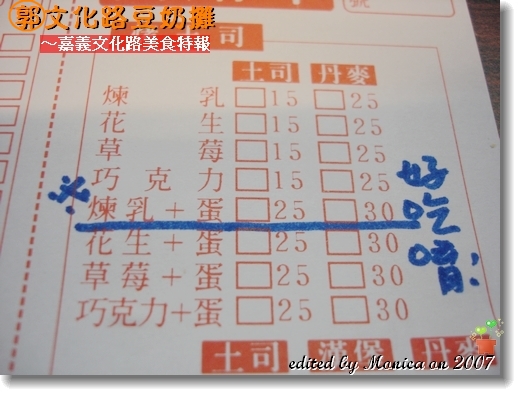 郭文化路豆奶攤
～嘉義文化路美食特報
號
司
土司 丹麥
煉乳 □15 □25
花生 □15 □25
草莓 □15 □25
巧克力 □15 □25
※煉乳+蛋 □25 □30
花生+蛋 □25 □30
草莓+蛋 □25 □30
巧克力+蛋 □25 □30
好吃唷!
土司 漢堡 丹麥
edited by Monica on 2007